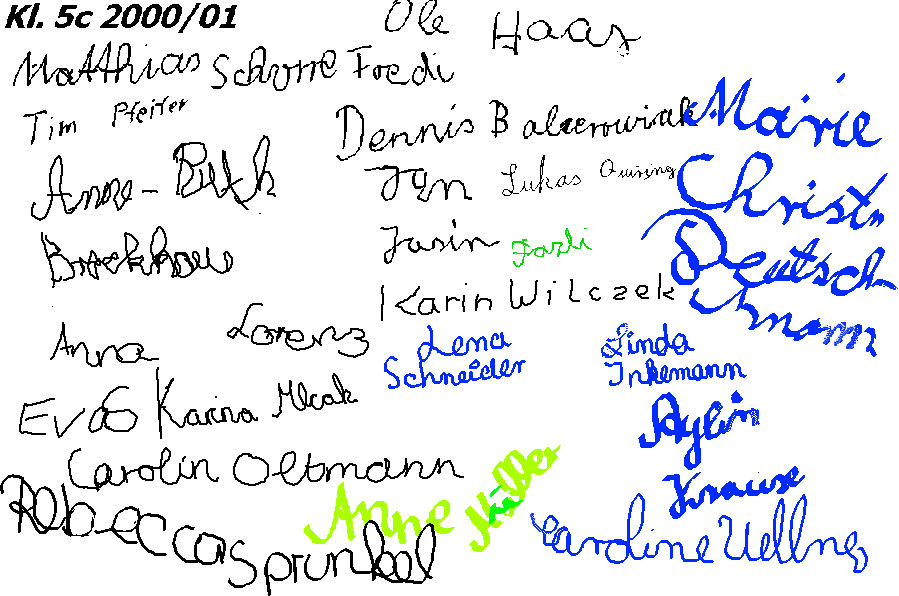 Kl. 5c 2000/01
Ole Haas
Matthias Schorre Fredi
Tim Pfeifer
Dennis Balcerowiak
Marie
Christin
Deutsch
mann
Anne-Ruth
Brockhaus
Jan Lukas Quiring
Jasin Fazli
Karin Wilczek
Anna Lorenz
Lena
Schneider
Linda
Inkemann
Eva Karina Mcak
Aylin
Krause
Carolin Oltmann
Anne Müller
Rebecca Sprunkel
Caroline Uellng